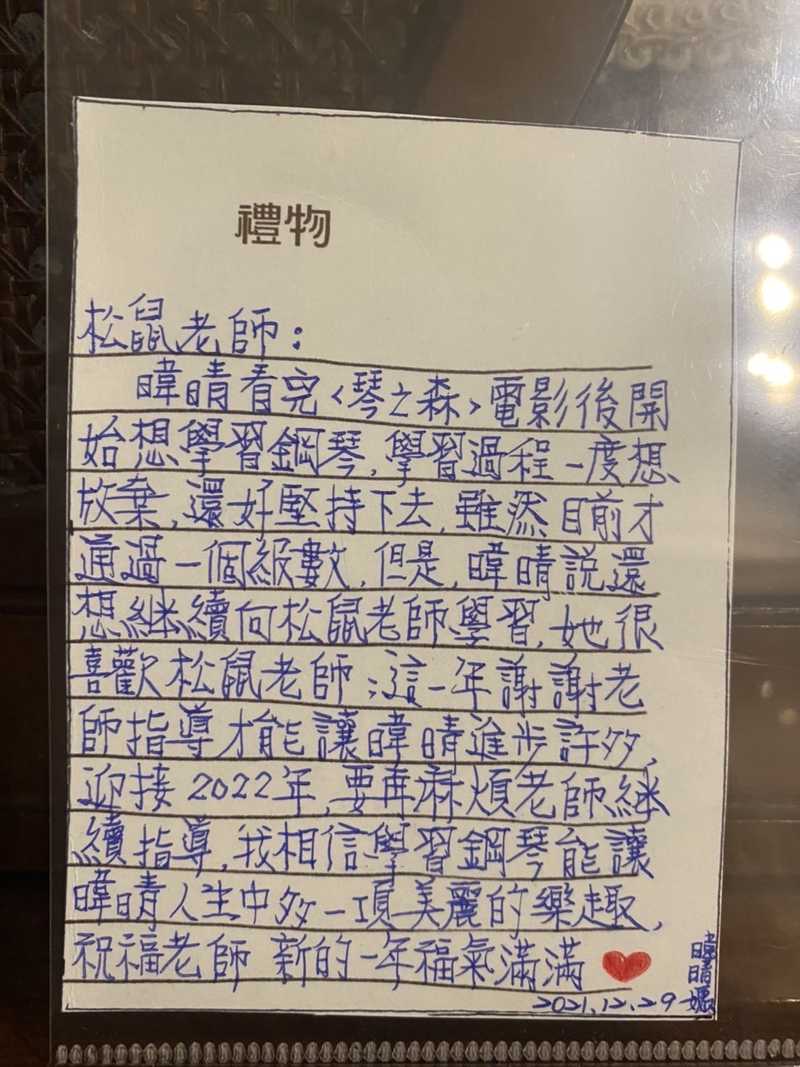 禮物
松鼠老師：
暐晴看完〈琴之森〉電影後開
始想學習鋼琴，學習過程一度想
放棄，還好堅持下去，雖然目前才
通過一個級數，但是，暐晴說還
想繼續向松鼠老師學習，她很
喜歡松鼠老師；這一年謝謝老
師指導才能讓暐晴進步許多，
迎接2022年，要再麻煩老師繼
續指導，我相信學習鋼琴能讓
暐晴人生中多一項美麗的樂趣，
祝福老師 新的一年福氣滿滿
暐晴
2021.12.29